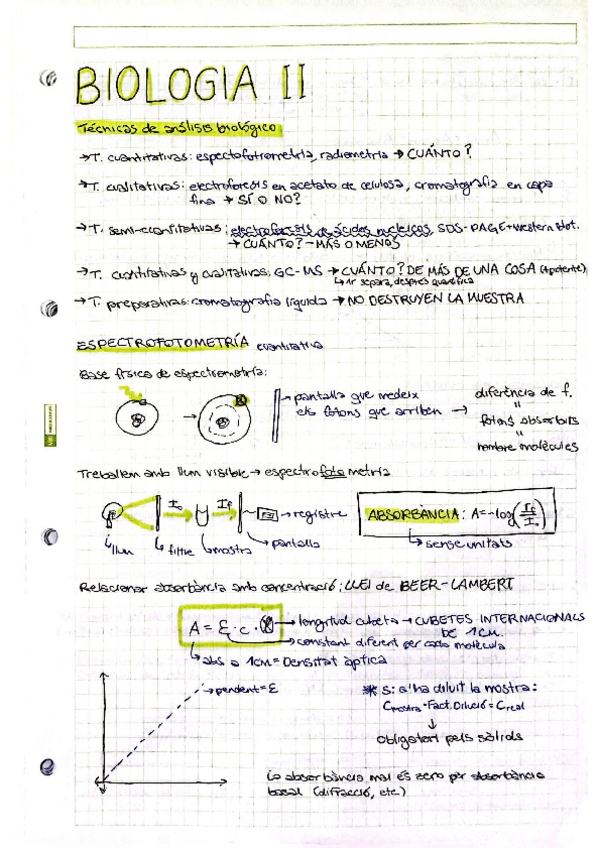 BIOLOGIA II
Técnicas de análisis biológico
→T. cuantitativas: espectofotrometría, radiometria → CUÁNTO?
→T. cualitativas: electroforesis en acetato de celulosa, cromatografía en capa
fina → SÍ O NO?
→T. semi-cuantitativas: electroforesis de ácidos nucleicos, SDS-PAGE+Western Blot.
→ CUÁNTO? - MÁS O MENOS
→T. cuantitativas y cualitativas: GC-MS → CUÁNTO? DE MÁS DE UNA COSA (+potente)
↳1r separa, després quantifica
→T. preparativas: cromatografía líquida → NO DESTRUYEN LA MUESTRA
ESPECTROFOTOMETRÍA cuantitativa
Base física de espectrometría:
→ pantalla que medeix
els fotons que arriben →
diferència de f.
"
fotons absorbits
"
nombre molècules
Treballem amb llum visible → espectrofotometria
I₀ If → registre
llum filtre mostra pantalla
ABSORBÀNCIA: A=-log(If/I₀)
↳ sense unitats
Relacionar absorbància amb concentració; LLEI de BEER-LAMBERT
A = ε·c·l → longitud cubeta → CUBETES INTERNACIONALS
DE 1cm.
→ constant diferent per cada molècula
↳ abs a 1cm = Densitat òptica
→ pendent = ε
* Si s'ha diluït la mostra:
Cmostra · Fact. Dilució = Creal
↓
obligatori pels sòlids
La absorbància mai és zero per absorbància
basal (difracció, etc)